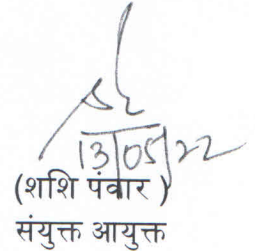 13/05/22
(शशि पंवार )
संयुक्त आयुक्त